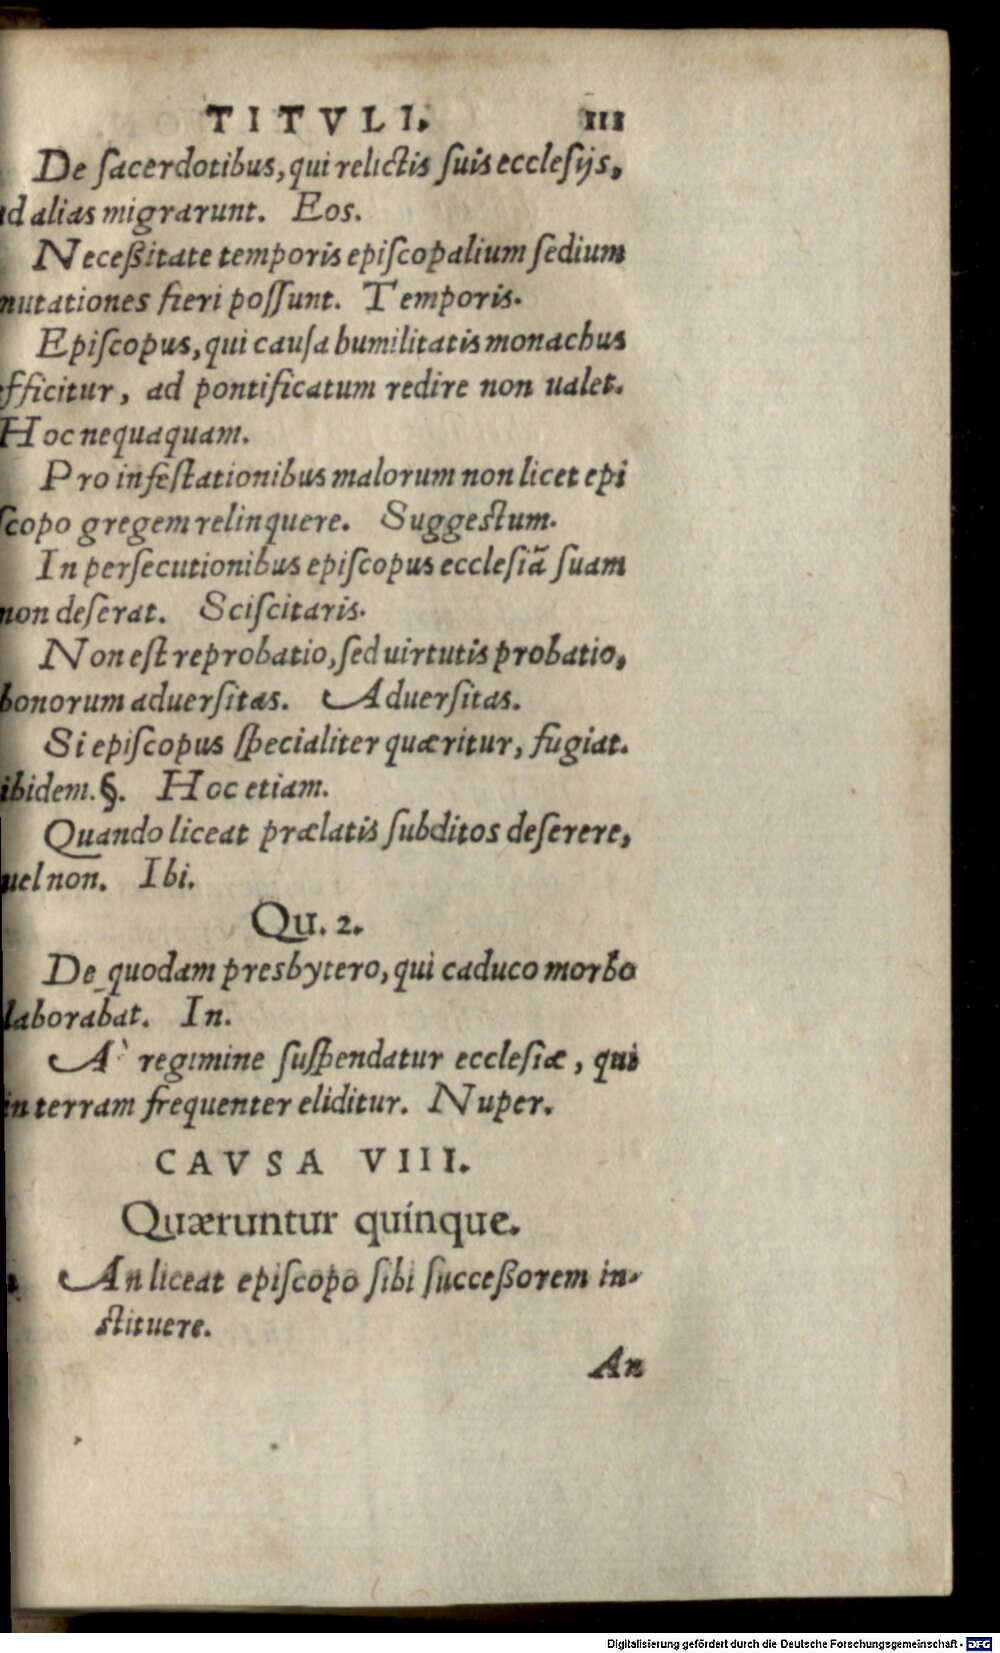 TITVLI. 111
De sacerdotibus, qui relictis suis ecclesijs,
ad alias migrarunt. Eos.
Neceßitate temporis episcopalium sedium
mutationes fieri possunt. Temporis.
Episcopus, qui causa humilitatis monachus
efficitur, ad pontificatum redire non ualet.
Hoc nequaquam.
Pro infestationibus malorum non licet epi
scopo gregem relinquere. Suggestum.
In persecutionibus episcopus ecclesiã suam
non deserat. Sciscitaris.
Non est reprobatio, sed uirtutis probatio,
bonorum aduersitas. Aduersitas.
Si episcopus specialiter quæritur, fugiat.
ibidem. §. Hoc etiam.
Quando liceat prælatis subditos deserere,
uel non. Ibi.
Qu. 2.
De quodam presbytero, qui caduco morbo
laborabat. In.
A` regimine suspendatur ecclesiæ, qui
in terram frequenter eliditur. Nuper.
CAVSA VIII.
Quæruntur quinque.
An liceat episcopo sibi succeßorem in-
stituere.
An
Digitalisierung gefördert durch die Deutsche Forschungsgemeinschaft - DFG